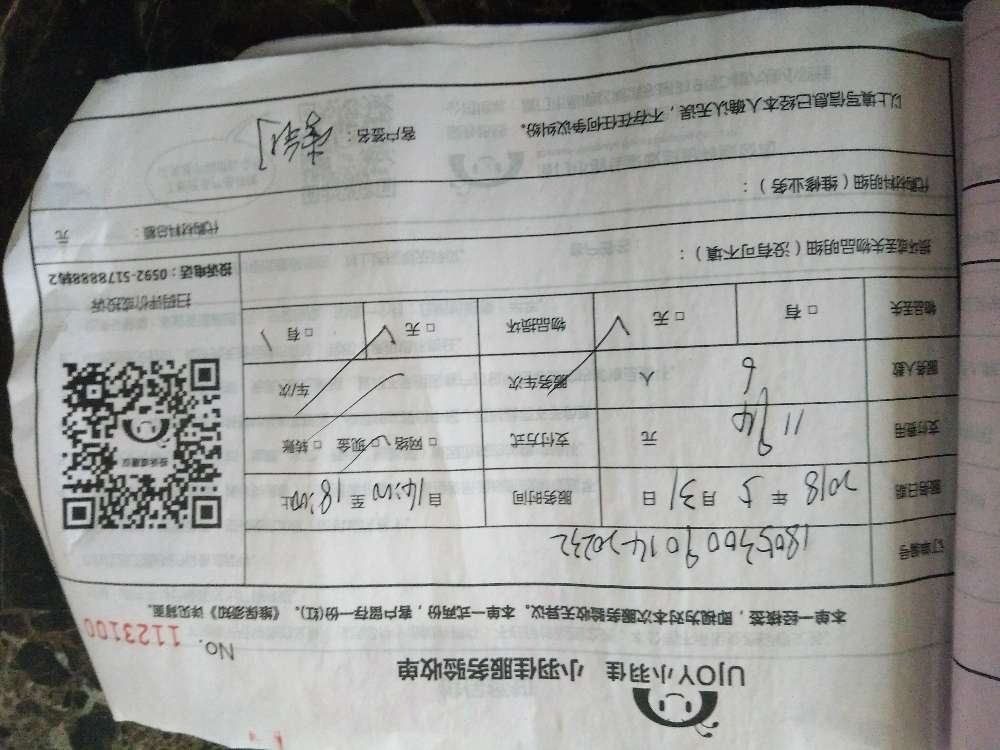 UJOY小羽佳 小羽佳服务验收单
No. 1123100
本单一经接签，即视为对本次服务验收无异议。本单一式两份，客户留存一份(红)。《维保须知》详见背面。
订单编号 1805300901420232
服务日期 2018 年 5 月 31 日 服务时间 自14:00 至 18:00止
支付费用 元 支付方式 □ 网络 □ 现金 □ 转账
服务人数 6 人 服务车次 车/次
物品丢失 □ 有 □ 无 物品损坏 □ 无 □ 有
投诉或建议
扫码评价或投诉
投诉电话：0592-5178888转2
损坏或丢失物品明细（没有可不填）：
代购材料总额： 元
代购材料明细（维修业务）：
以上填写信息已经本人确认无误，不存在任何争议纠纷。
客户签名：